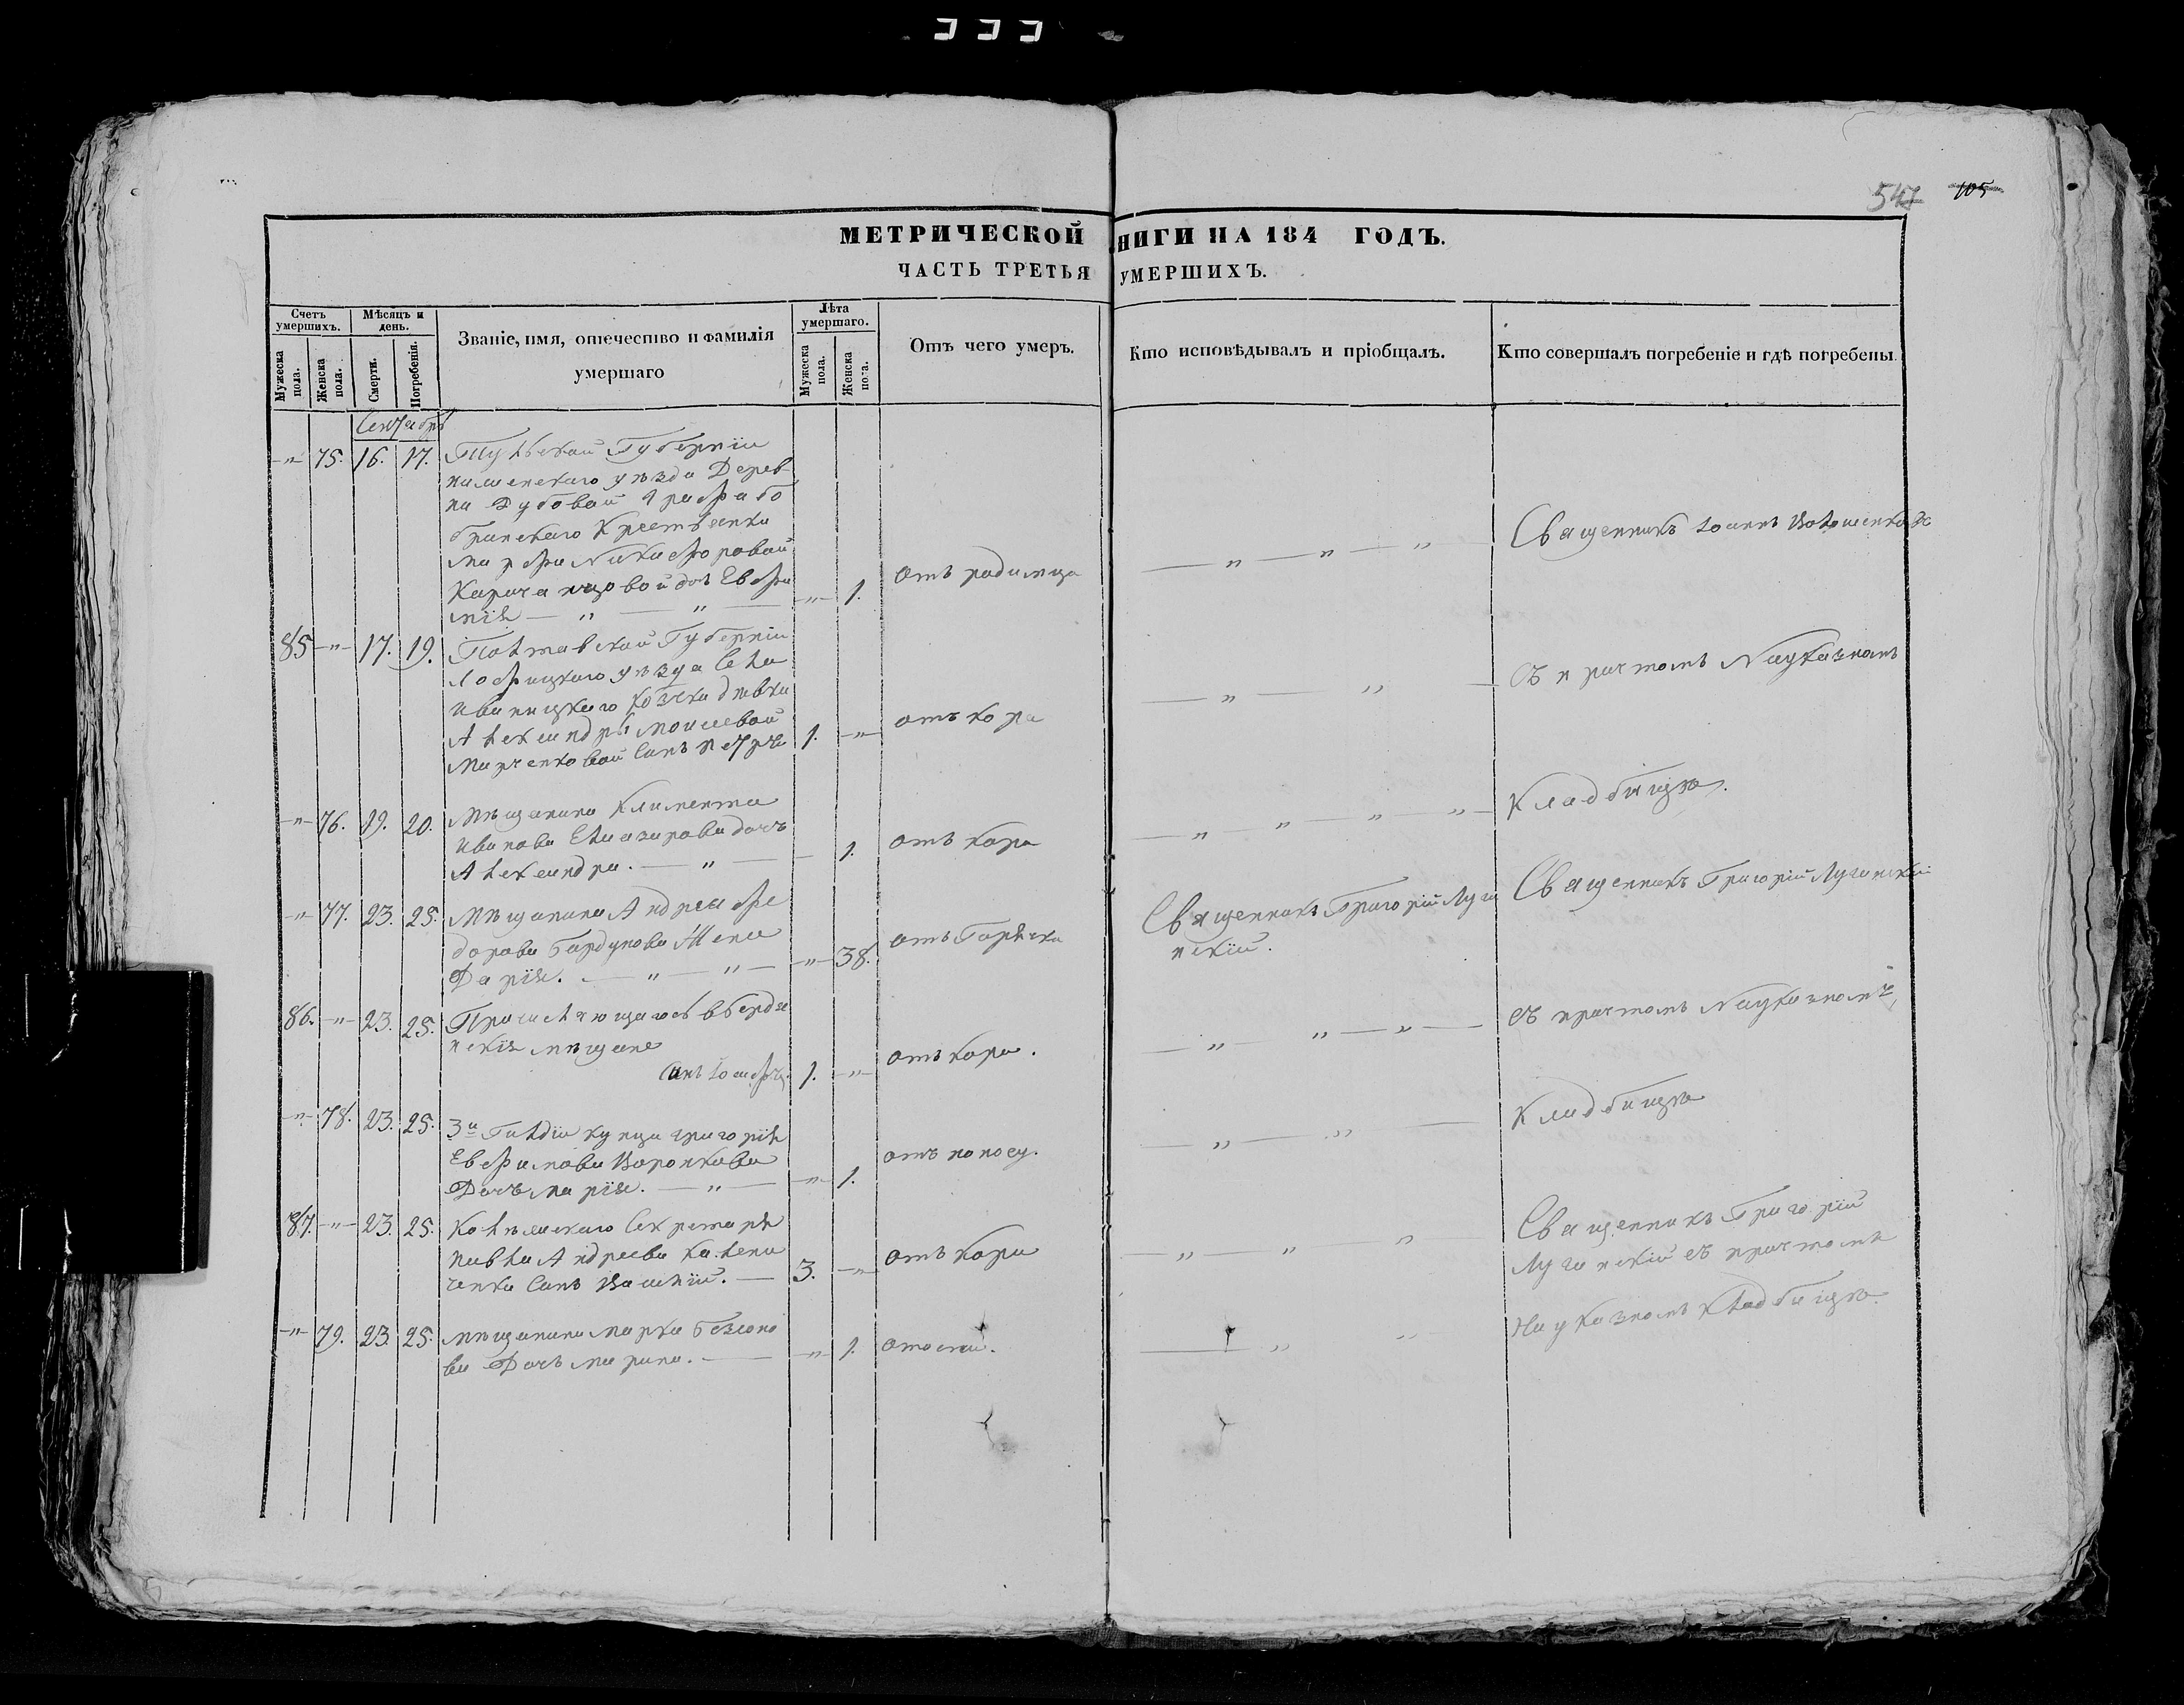 547 105
МЕТРИЧЕСКОЙ НИГИ НА 184 ГОДЪ.
ЧАСТЬ ТРЕТЬЯ УМЕРШИХЪ.
Счетъ умершихъ.
Мужеска пола.
Женска пола.
Мѣсяцъ и день.
Смерти.
Погребенія.
Званіе, имя, отечество и фамилія
умершаго
Лѣта умершаго.
Мужеска пола.
Женска пола.
Отъ чего умеръ.
Кто исповѣдывалъ и пріобщалъ.
Кто совершалъ погребеніе и гдѣ погребены.
Сентябрь
-"- 75. 16. 17. Тульской Губерніи
уѣзда Дерев
ни Дубовой Графа Бо
бринскаго Крестьянки
Марфы Никифоровой
дочь Евфи
мія — " — " — -"- 1. отъ родимца — " — " — " Священникъ Іоаннъ
85 -"- 17. 19. Полтавской Губерніи
Лофицкаго уѣзда Села
Иваницкаго Козачки дѣвки
Александры Моисеевой
Марченковой Сынъ Петръ 1. -"- отъ кори — " — " — съ причтомъ На указномъ
-"- 76. 19. 20. Мѣщанина Климента
Иванова Елиазарова дочь
Александра. — " — 1. отъ кори — " — " — " — " — Кладбищѣ.
-"- 77. 23. 25. Мѣщанина Андрея Фе
дорова Бардукова Жена
Дарія. — " — " — -"- 38. отъ Горячки Священникъ Григорій Луги
нскій. Священникъ Григорій Лугинскій
86. -"- 23. 25. Причисляющагося в Бердя
нскія мѣщане
Сынъ Іосифъ. 1. -"- отъ кори. — " — " — " — съ причтомъ На указномъ
-"- 78. 23. 25. 3й Гилдіи купца Григорія
Евфимова Воронкова
Дочь Марія. — " — -"- 1. отъ поносу. — " — " — Кладбищѣ
87. -"- 23. 25. Колѣжскаго Секретаря
Павла Андреева Калени
ченка Сынъ Василій. — 3. -"- отъ кори — " — " — " Священникъ Григорій
Лугинскій съ причтомъ
-"- 79. 23. 25. Мѣщанина Марка
ва Дочь Марина. — -"- 1. отоспы. — " — " На указномъ кладбищѣ.